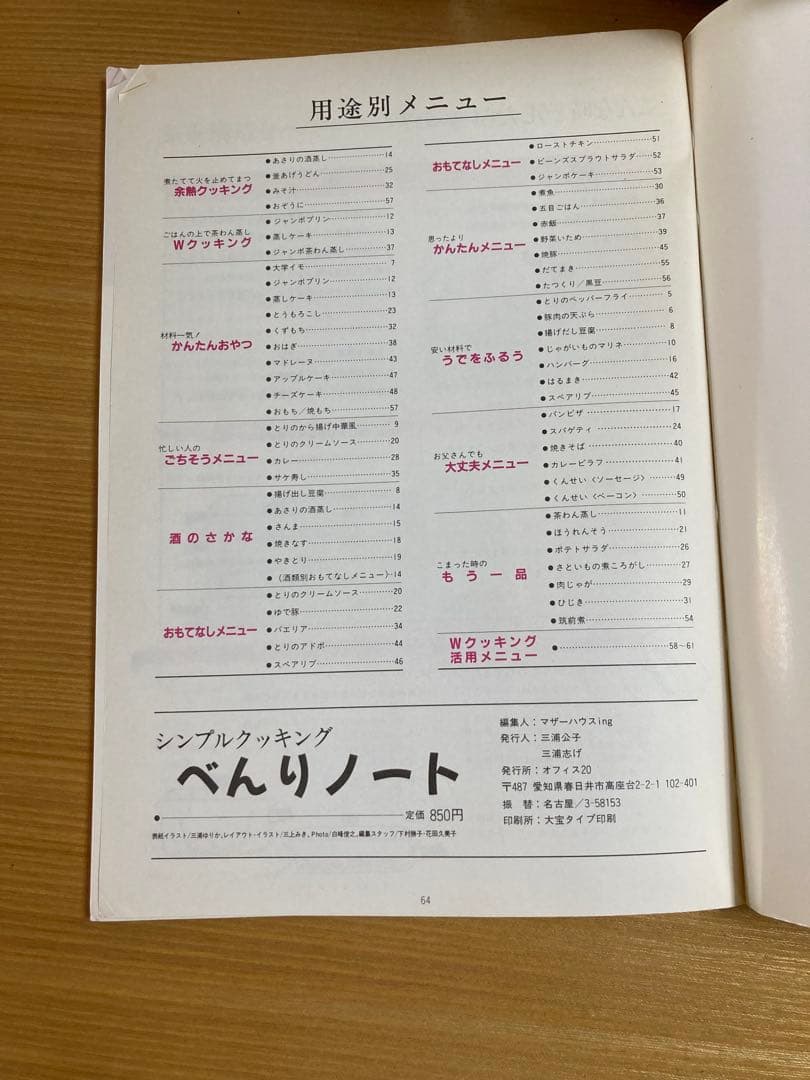 用途別メニュー
煮たてて火を止めてまつ
余熱クッキング
●あさりの酒蒸し……14
●釜あげうどん……25
●みそ汁……32
●おぞうに……57
ごはんの上で茶わん蒸し
Wクッキング
●ジャンボプリン……12
●蒸しケーキ……13
●ジャンボ茶わん蒸し……37
材料一気!
かんたんおやつ
●大学イモ……7
●ジャンボプリン……12
●蒸しケーキ……13
●とうもろこし……23
●くずもち……32
●おはぎ……38
●マドレーヌ……43
●アップルケーキ……47
●チーズケーキ……48
●おもち/焼もち……57
忙しい人の
ごちそうメニュー
●とりのから揚げ中華風……9
●とりのクリームソース……20
●カレー……28
●サケ寿し……35
酒のさかな
●揚げ出し豆腐……8
●あさりの酒蒸し……14
●さんま……15
●焼きなす……18
●やきとり……19
●(酒類別おもてなしメニュー)…14
おもてなしメニュー
●とりのクリームソース……20
●ゆで豚……22
●パエリア……34
●とりのアドボ……44
●スペアリブ……46
おもてなしメニュー
●ローストチキン……51
●ビーンズスプラウトサラダ……52
●ジャンボケーキ……53
思ったより
かんたんメニュー
●煮魚……30
●五目ごはん……36
●赤飯……37
●野菜いため……39
●焼豚……45
●だてまき……55
●たつくり/黒豆……56
安い材料で
うでをふるう
●とりのペッパーフライ……5
●豚肉の天ぷら……6
●揚げだし豆腐……8
●じゃがいものマリネ……10
●ハンバーグ……16
●はるまき……42
●スペアリブ……45
お父さんでも
大丈夫メニュー
●パンピザ……17
●スパゲティ……24
●焼きそば……40
●カレーピラフ……41
●くんせい〈ソーセージ〉……49
●くんせい〈ベーコン〉……50
こまった時の
もう一品
●茶わん蒸し……11
●ほうれんそう……21
●ポテトサラダ……26
●さといもの煮ころがし……27
●肉じゃが……29
●ひじき……31
●筑前煮……54
Wクッキング
活用メニュー
●……58~61
シンプルクッキング
べんりノート
定価 850円
表紙イラスト/三浦ゆりか、レイアウト・イラスト/三上みき、Photo/白峰俊之、編集スタッフ/下村勝子・花田久美子
編集人:マザーハウスing
発行人:三浦公子
三浦志げ
発行所:オフィス20
〒487 愛知県春日井市高座台2-2-1 102-401
振 替:名古屋/3-58153
印刷所:大宝タイプ印刷
64